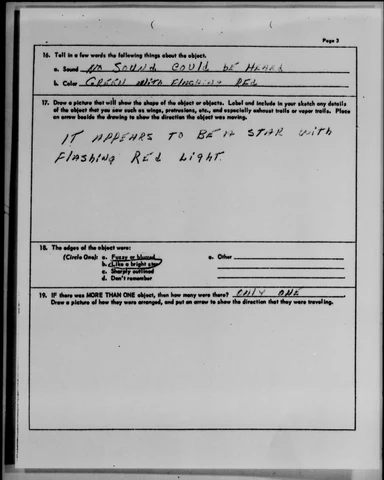 Page 3
16. Tell in a few words the following things about the object.
a. Sound NO SOUND COULD BE HEARD
b. Color GREEN WITH FLASHING RED
17. Draw a picture that will show the shape of the object or objects. Label and include in your sketch any details
of the object that you saw such as wings, protrusions, etc., and especially exhaust trails or vapor trails. Place
an arrow beside the drawing to show the direction the object was moving.
IT APPEARS TO BE A STAR WITH
FLASHING RED LIGHT
18. The edges of the object were:
(Circle One): a. Fuzzy or blurred e. Other
b. Like a bright star
c. Sharply outlined
d. Don't remember
19. IF there was MORE THAN ONE object, then how many were there? ONLY ONE
Draw a picture of how they were arranged, and put an arrow to show the direction that they were traveling.